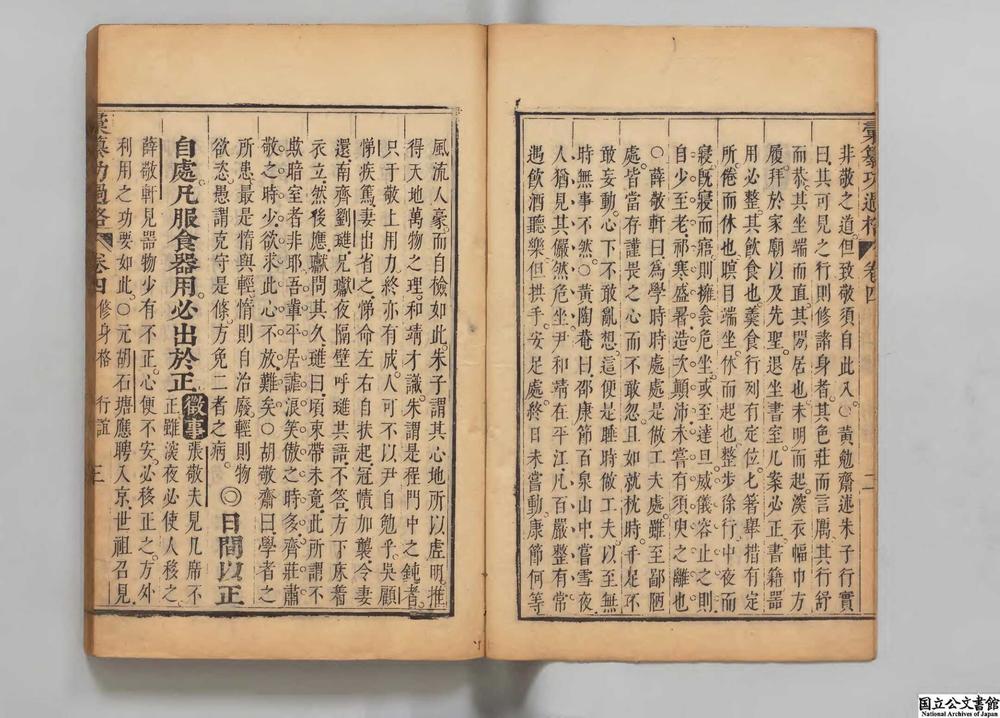 彙纂功過格 卷四 二
非敬之道但致敬須自此入○黃勉齋述朱子行實
曰其可見之行則修諸身者其色莊而言厲其行舒
而恭其坐端而直其閒居也未明而起深衣幅巾方
履拜於家廟以及先聖退坐書室几案必正書籍器
用必整其飲食也羹食行列有定位匕箸舉措有定
所倦而休也瞑目端坐休而起也整步徐行中夜而
寢既寢而寤則擁衾危坐或至達旦威儀容止之則
自少至老祁寒盛暑造次顛沛未嘗有須臾之離也
○薛敬軒曰為學時時處處是做工夫處雖至鄙陋
處皆當存謹畏之心而不敢忽且如就枕時手足不
敢妄動心下不敢亂想這便是睡時做工夫以至無
時無事不然○黃陶菴曰邵康節百泉山中嘗雪夜
人猶見其儼然危坐尹和靖在平江凡百嚴整有常
遇飲酒聽樂但拱手安足處終日未嘗動康節何等
風流人豪而自檢如此朱子謂其心地所以虛明推
得天地萬物之理和靖才識朱謂是程門中之鈍者
只于敬上用力終亦有成人可不以尹自勉乎吳顧
悌疾篤妻出省之悌命左右自扶起冠幘加襲令妻
還南齊劉璡兄瓛夜隔壁呼璡共語不答方下牀著
衣立然後應瓛問其久璡曰頃束帶未竟此所謂不
欺暗室者非耶吾輩平居謔浪笑傲之時多齊莊肅
敬之時少欲求此心不放難矣○胡敬齋曰學者之
所患最是惰與輕惰則自治廢輕則物
欲恣愚謂克守是條方免二者之病○日間以正
自處凡服食器用必出於正 徵事 張敬夫見几席不
正雖深夜必使人移之
薛敬軒見器物少有不正心便不安必移正之方外
利用之功要如此○元胡石塘應聘入京世祖召見
彙纂功過格 卷四 修身格 行誼 三
国立公文書館
National Archives of Japan